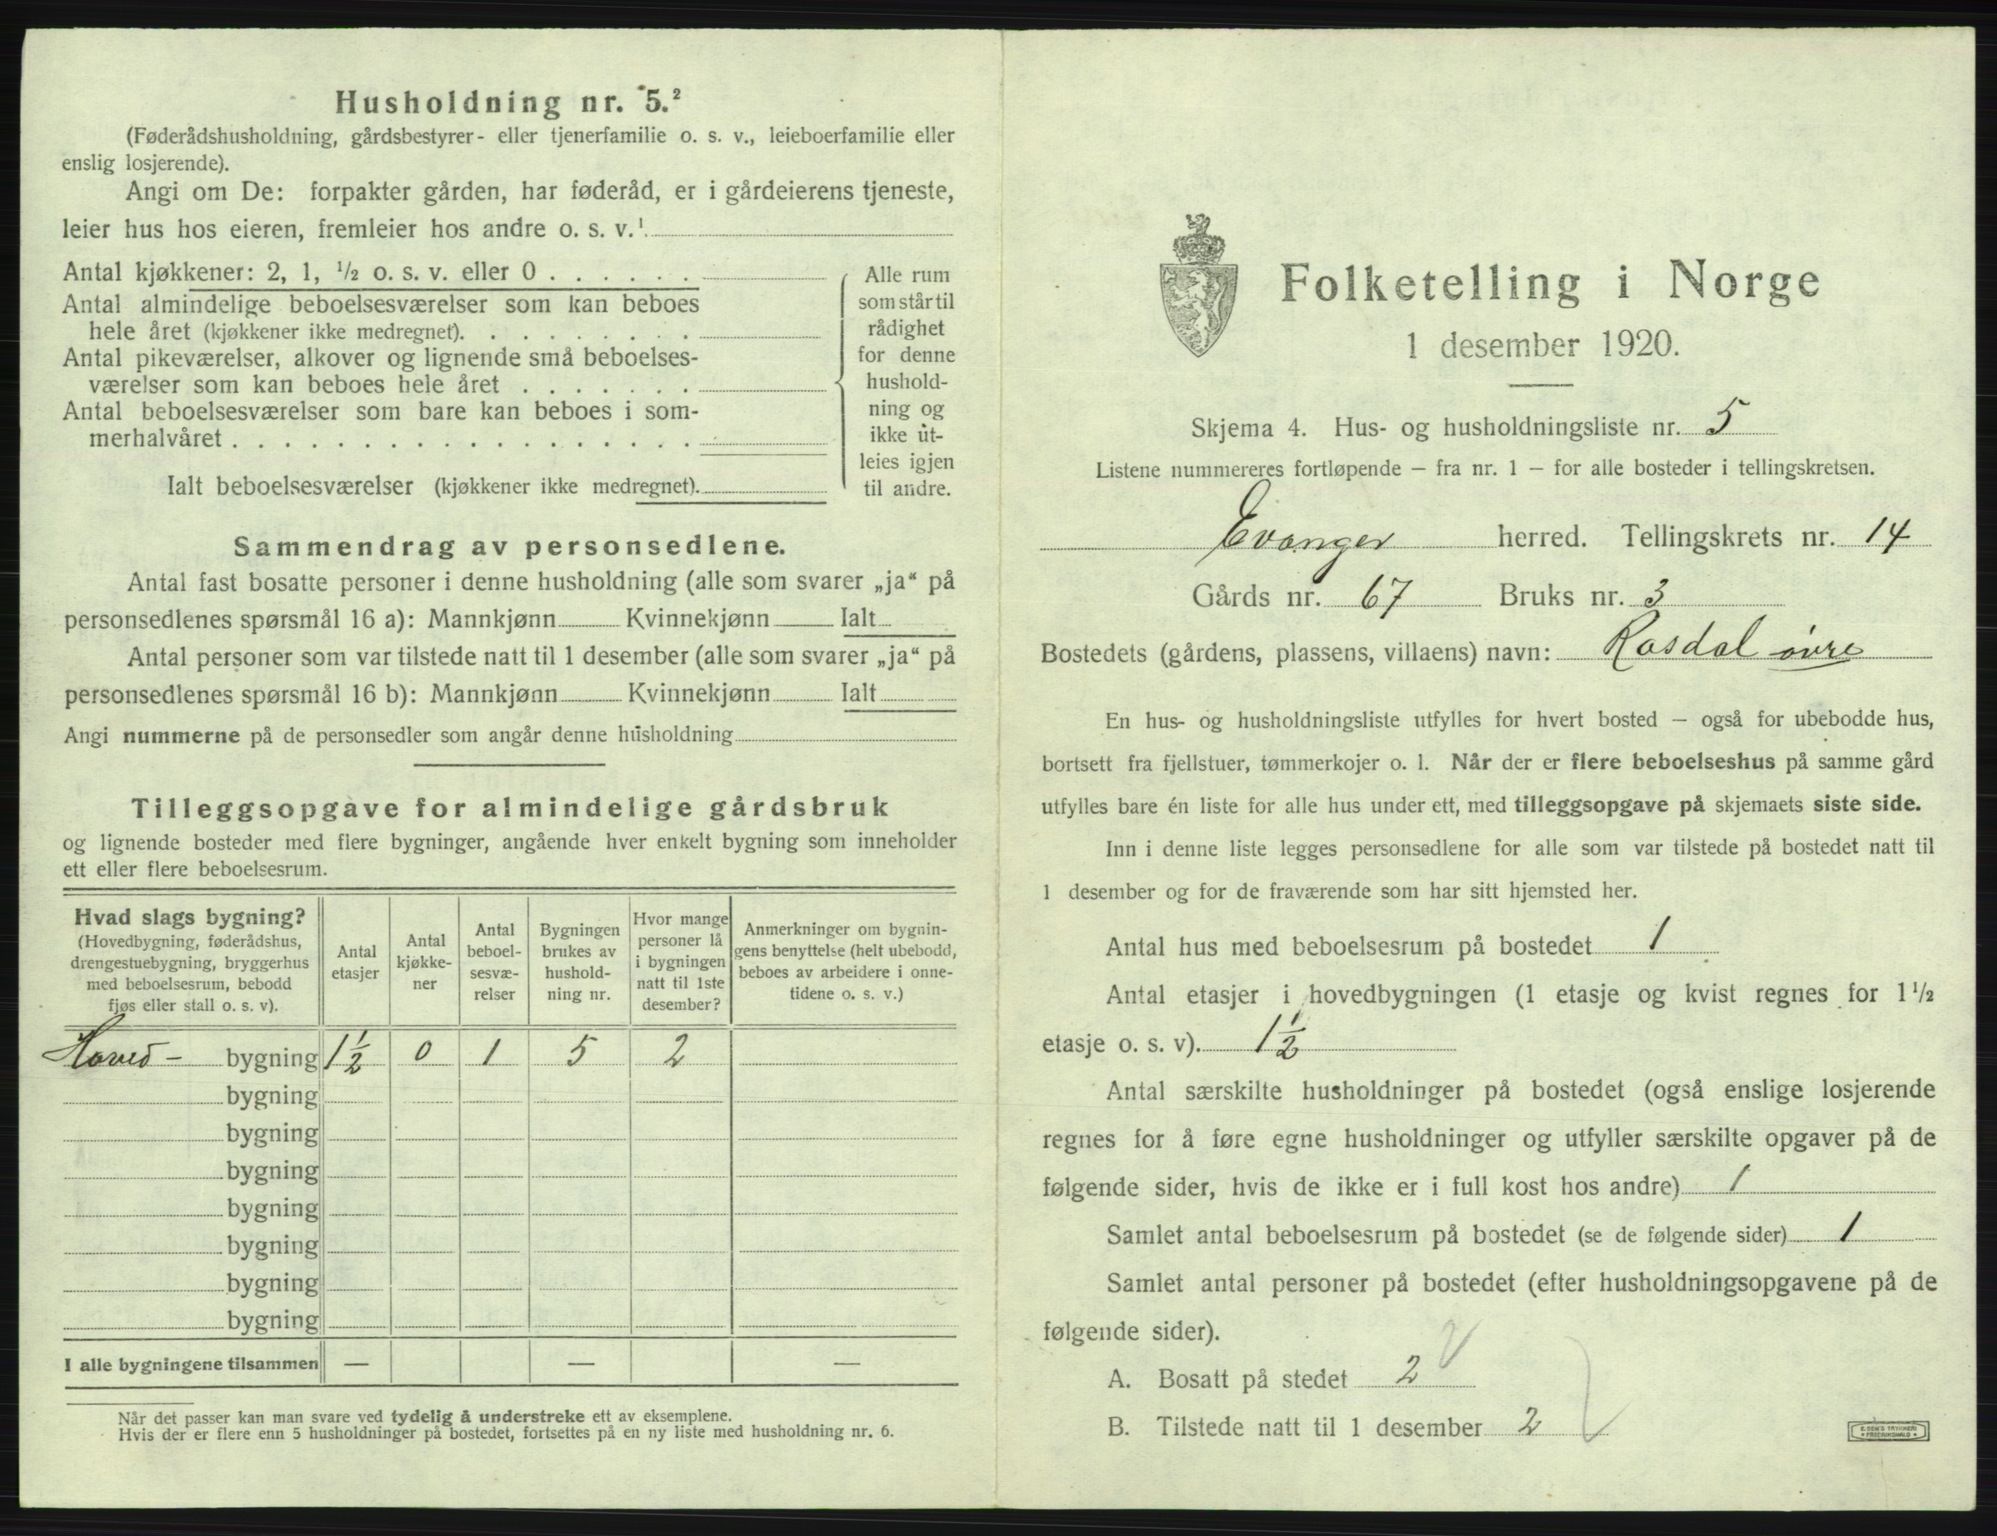 Husholdning nr. 5.²
(Føderådshusholdning, gårdsbestyrer- eller tjenerfamilie o. s. v., leieboerfamilie eller
enslig losjerende).
Angi om De: forpakter gården, har føderåd, er i gårdeierens tjeneste,
leier hus hos eieren, fremleier hos andre o. s. v.¹
Antal kjøkkener: 2, 1, ½ o. s. v. eller 0
Antal almindelige beboelsesværelser som kan beboes
hele året (kjøkkener ikke medregnet).
Antal pikeværelser, alkover og lignende små beboelses-
værelser som kan beboes hele året
Antal beboelsesværelser som bare kan beboes i som-
merhalvåret
Ialt beboelsesværelser (kjøkkener ikke medregnet).
Alle rum
som står til
rådighet
for denne
hushold-
ning og
ikke ut-
leies igjen
til andre.
Sammendrag av personsedlene.
Antal fast bosatte personer i denne husholdning (alle som svarer „ja“ på
personsedlenes spørsmål 16 a): Mannkjønn Kvinnekjønn Ialt
Antal personer som var tilstede natt til 1 desember (alle som svarer „ja“ på
personsedlenes spørsmål 16 b): Mannkjønn Kvinnekjønn Ialt
Angi nummerne på de personsedler som angår denne husholdning
Tilleggsopgave for almindelige gårdsbruk
og lignende bosteder med flere bygninger, angående hver enkelt bygning som inneholder
ett eller flere beboelsesrum.
Hvad slags bygning?
(Hovedbygning, føderådshus,
drengestuebygning, bryggerhus
med beboelsesrum, bebodd
fjøs eller stall o. s. v).
Antal
etasjer
Antal
kjøkke-
ner
Antal
beboel-
sesvæ-
relser
Bygningen
brukes av
hushold-
ning nr.
Hvor mange
personer lå
i bygningen
natt til 1ste
desember?
Anmerkninger om bygnin-
gens benyttelse (helt ubebodd,
beboes av arbeidere i onne-
tidene o. s. v.)
Hoved- bygning 1½ 0 1 5 2
bygning
bygning
bygning
bygning
bygning
bygning
bygning
I alle bygningene tilsammen — — —
Når det passer kan man svare ved tydelig å understreke ett av eksemplene.
Hvis der er flere enn 5 husholdninger på bostedet, fortsettes på en ny liste med husholdning nr. 6.
Folketelling i Norge
1 desember 1920.
Skjema 4. Hus- og husholdningsliste nr. 5
Listene nummereres fortløpende – fra nr. 1 – for alle bosteder i tellingskretsen.
Evanger herred. Tellingskrets nr. 14
Gårds nr. 67 Bruks nr. 3
Bostedets (gårdens, plassens, villaens) navn: Rasdal øvre
En hus- og husholdningsliste utfylles for hvert bosted – også for ubebodde hus,
bortsett fra fjellstuer, tømmerkojer o. l. Når der er flere beboelseshus på samme gård
utfylles bare én liste for alle hus under ett, med tilleggsopgave på skjemaets siste side.
Inn i denne liste legges personsedlene for alle som var tilstede på bostedet natt til
1 desember og for de fraværende som har sitt hjemsted her.
Antal hus med beboelsesrum på bostedet 1
Antal etasjer i hovedbygningen (1 etasje og kvist regnes for 1½
etasje o. s. v). 1½
Antal særskilte husholdninger på bostedet (også enslige losjerende
regnes for å føre egne husholdninger og utfyller særskilte opgaver på de
følgende sider, hvis de ikke er i full kost hos andre) 1
Samlet antal beboelsesrum på bostedet (se de følgende sider) 1
Samlet antal personer på bostedet (efter husholdningsopgavene på de
følgende sider).
A. Bosatt på stedet 2
B. Tilstede natt til 1 desember 2